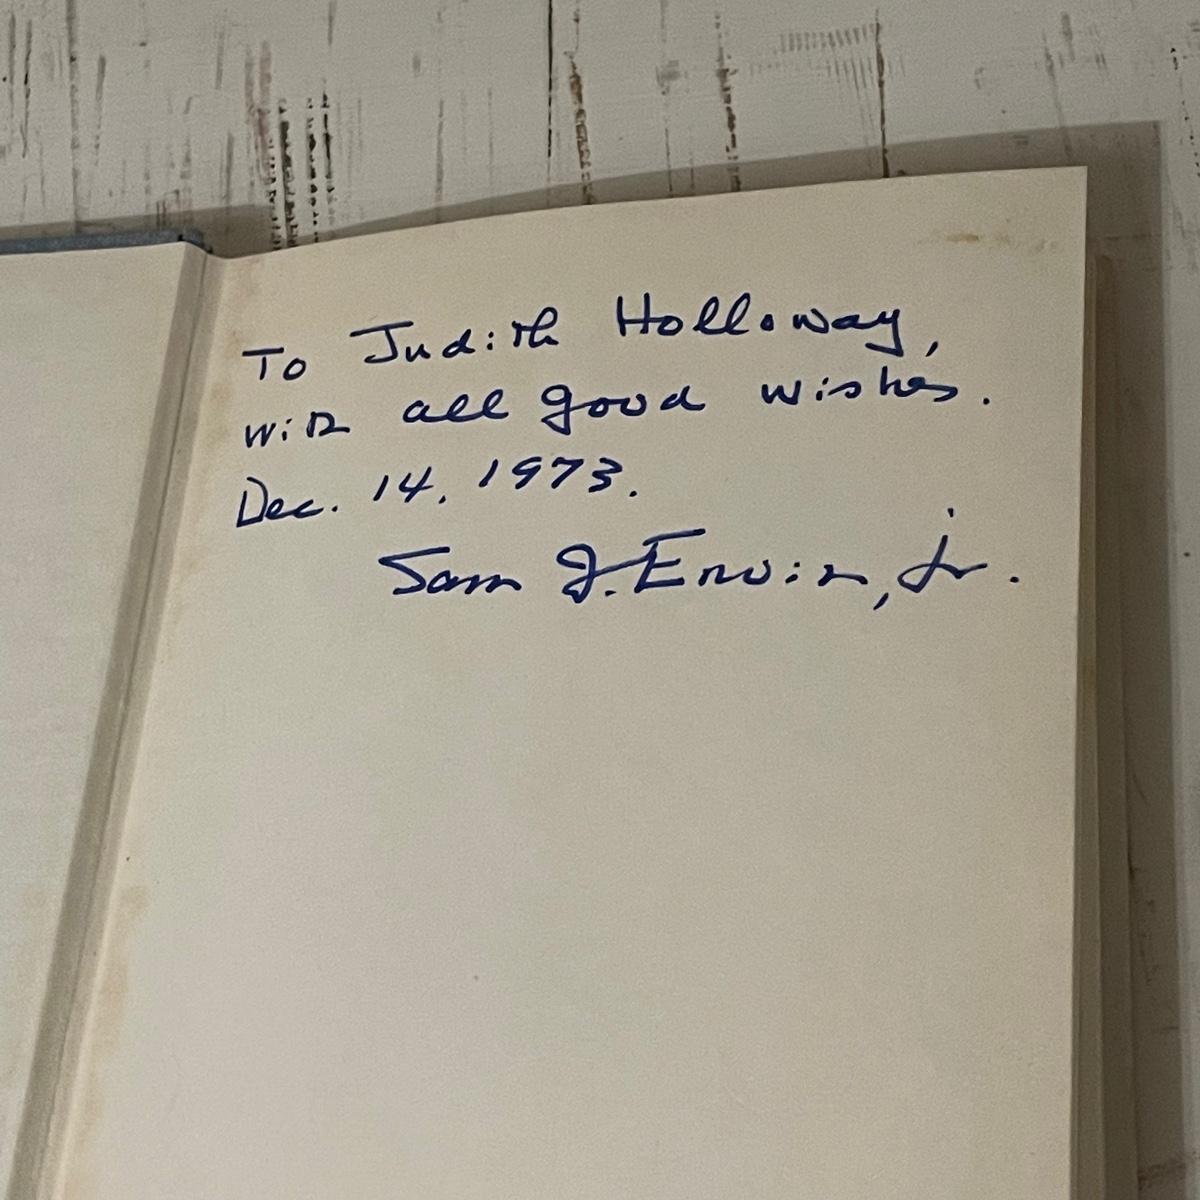 To Judith Holloway,
with all good wishes.
Dec. 14, 1973.
Sam J. Ervin, Jr.